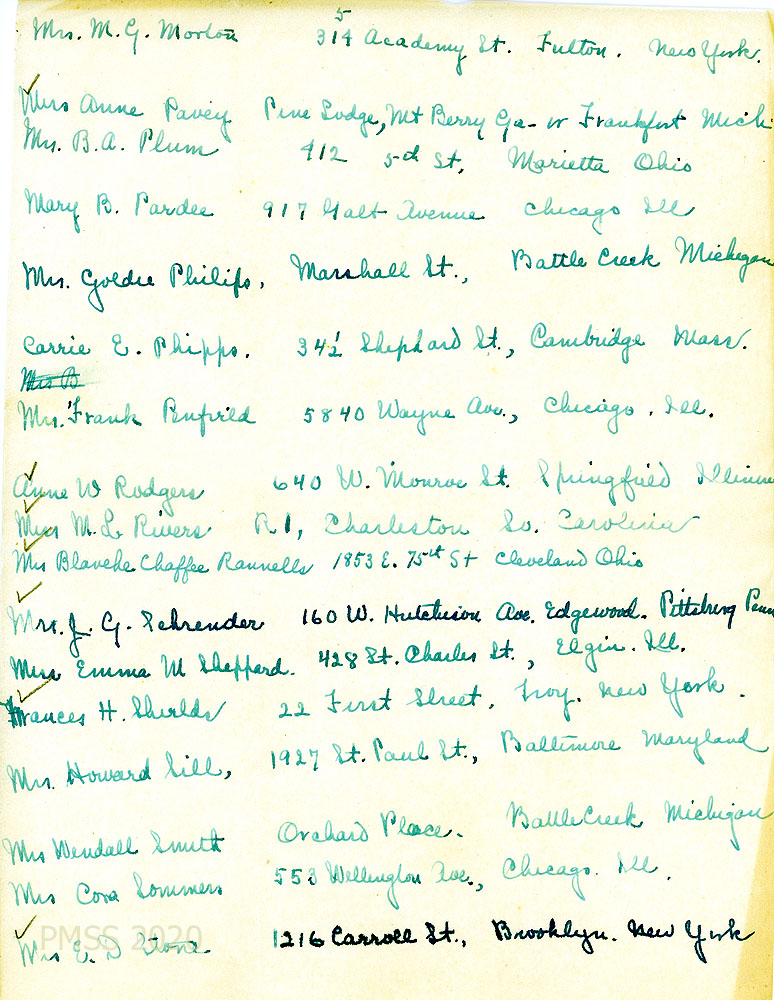 5
Mrs. M. G. Morton 314 Academy St. Fulton. New York.
Miss Anne Pavey Pine Lodge, Mt Berry Ga - or Frankfort Mich.
Mrs. B. A. Plum 412 5th St, Marietta Ohio
Mary B. Pardee 917 Galt Avenue Chicago Ill
Mrs. Goldie Philips, Marshall St., Battle Creek Michigan
Carrie E. Phipps. 34½ Shephard St., Cambridge Mass.
Mrs B
Mrs. Frank Penfield 5840 Wayne Ave., Chicago. Ill.
Anne W Rodgers 640 W. Monroe St. Springfield Illinois
Miss M. L. Rivers R 1, Charleston So. Carolina
Mrs Blanche Chaffee Rannells 1853 E. 75th St Cleveland Ohio
Mrs. J. G. Schrender 160 W. Hutchison Ave. Edgewood. Pittsburg Penn
Miss Emma M Sheppard. 428 St. Charles St., Elgin. Ill.
Frances H. Shields 22 First Street, Troy. New York.
Mrs. Howard Sill, 1927 St. Paul St., Baltimore Maryland
Mrs Wendall Smith Orchard Place. Battle Creek Michigan
Mrs Cora Sommers 553 Wellington Ave., Chicago. Ill.
Mrs E. D Stone 1216 Carroll St., Brooklyn. New York
PMSS 2020